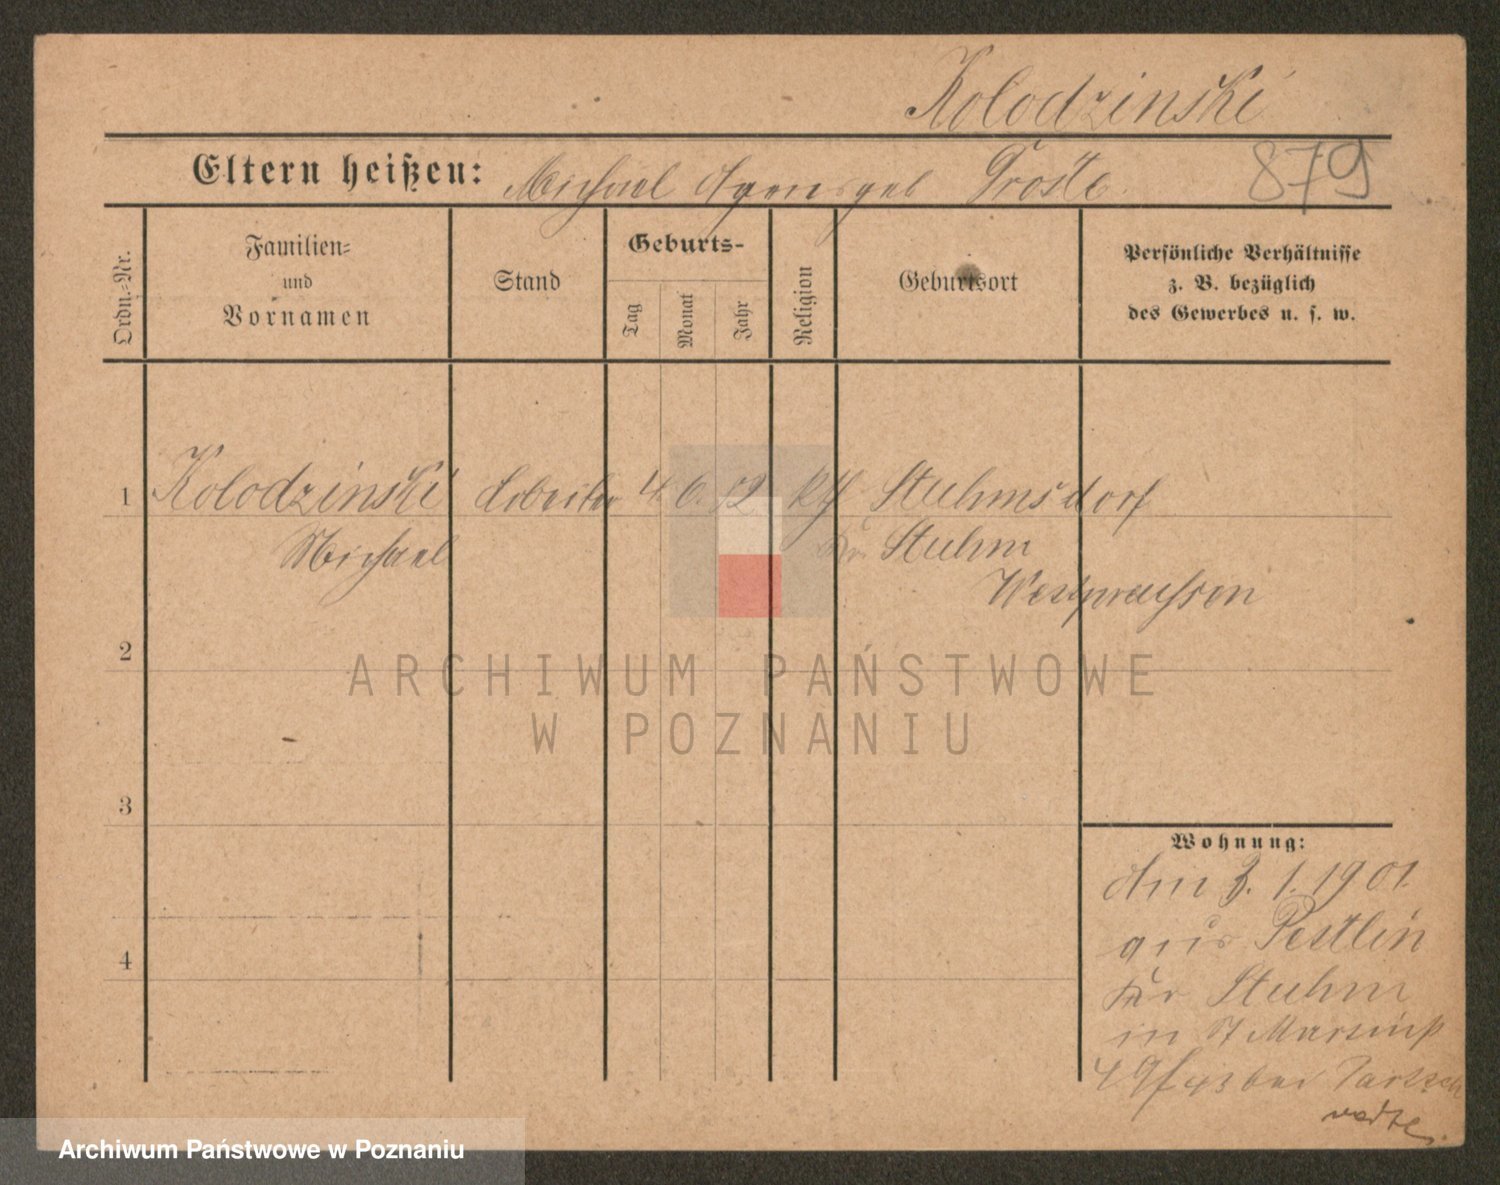 Kolodzinski
Eltern heißen: Michael Agnes geb Troste
879
Ordn.-Nr.
Familien-
und
Vornamen
Stand
Geburts-
Tag
Monat
Jahr
Religion
Geburtsort
Persönliche Verhältnisse
z. B. bezüglich
des Gewerbes u. s. w.
1 Kolodzinski Arbeiter 4. 6. 52 kth Stuhmsdorf
Michael Kr Stuhm
Westpreußen
2
3
4
Wohnung:
Am 3. 1. 1901.
aus Pestlin
Kr Stuhm
in St Martinst
49 bei
ARCHIWUM PAŃSTWOWE
W POZNANIU
Archiwum Państwowe w Poznaniu